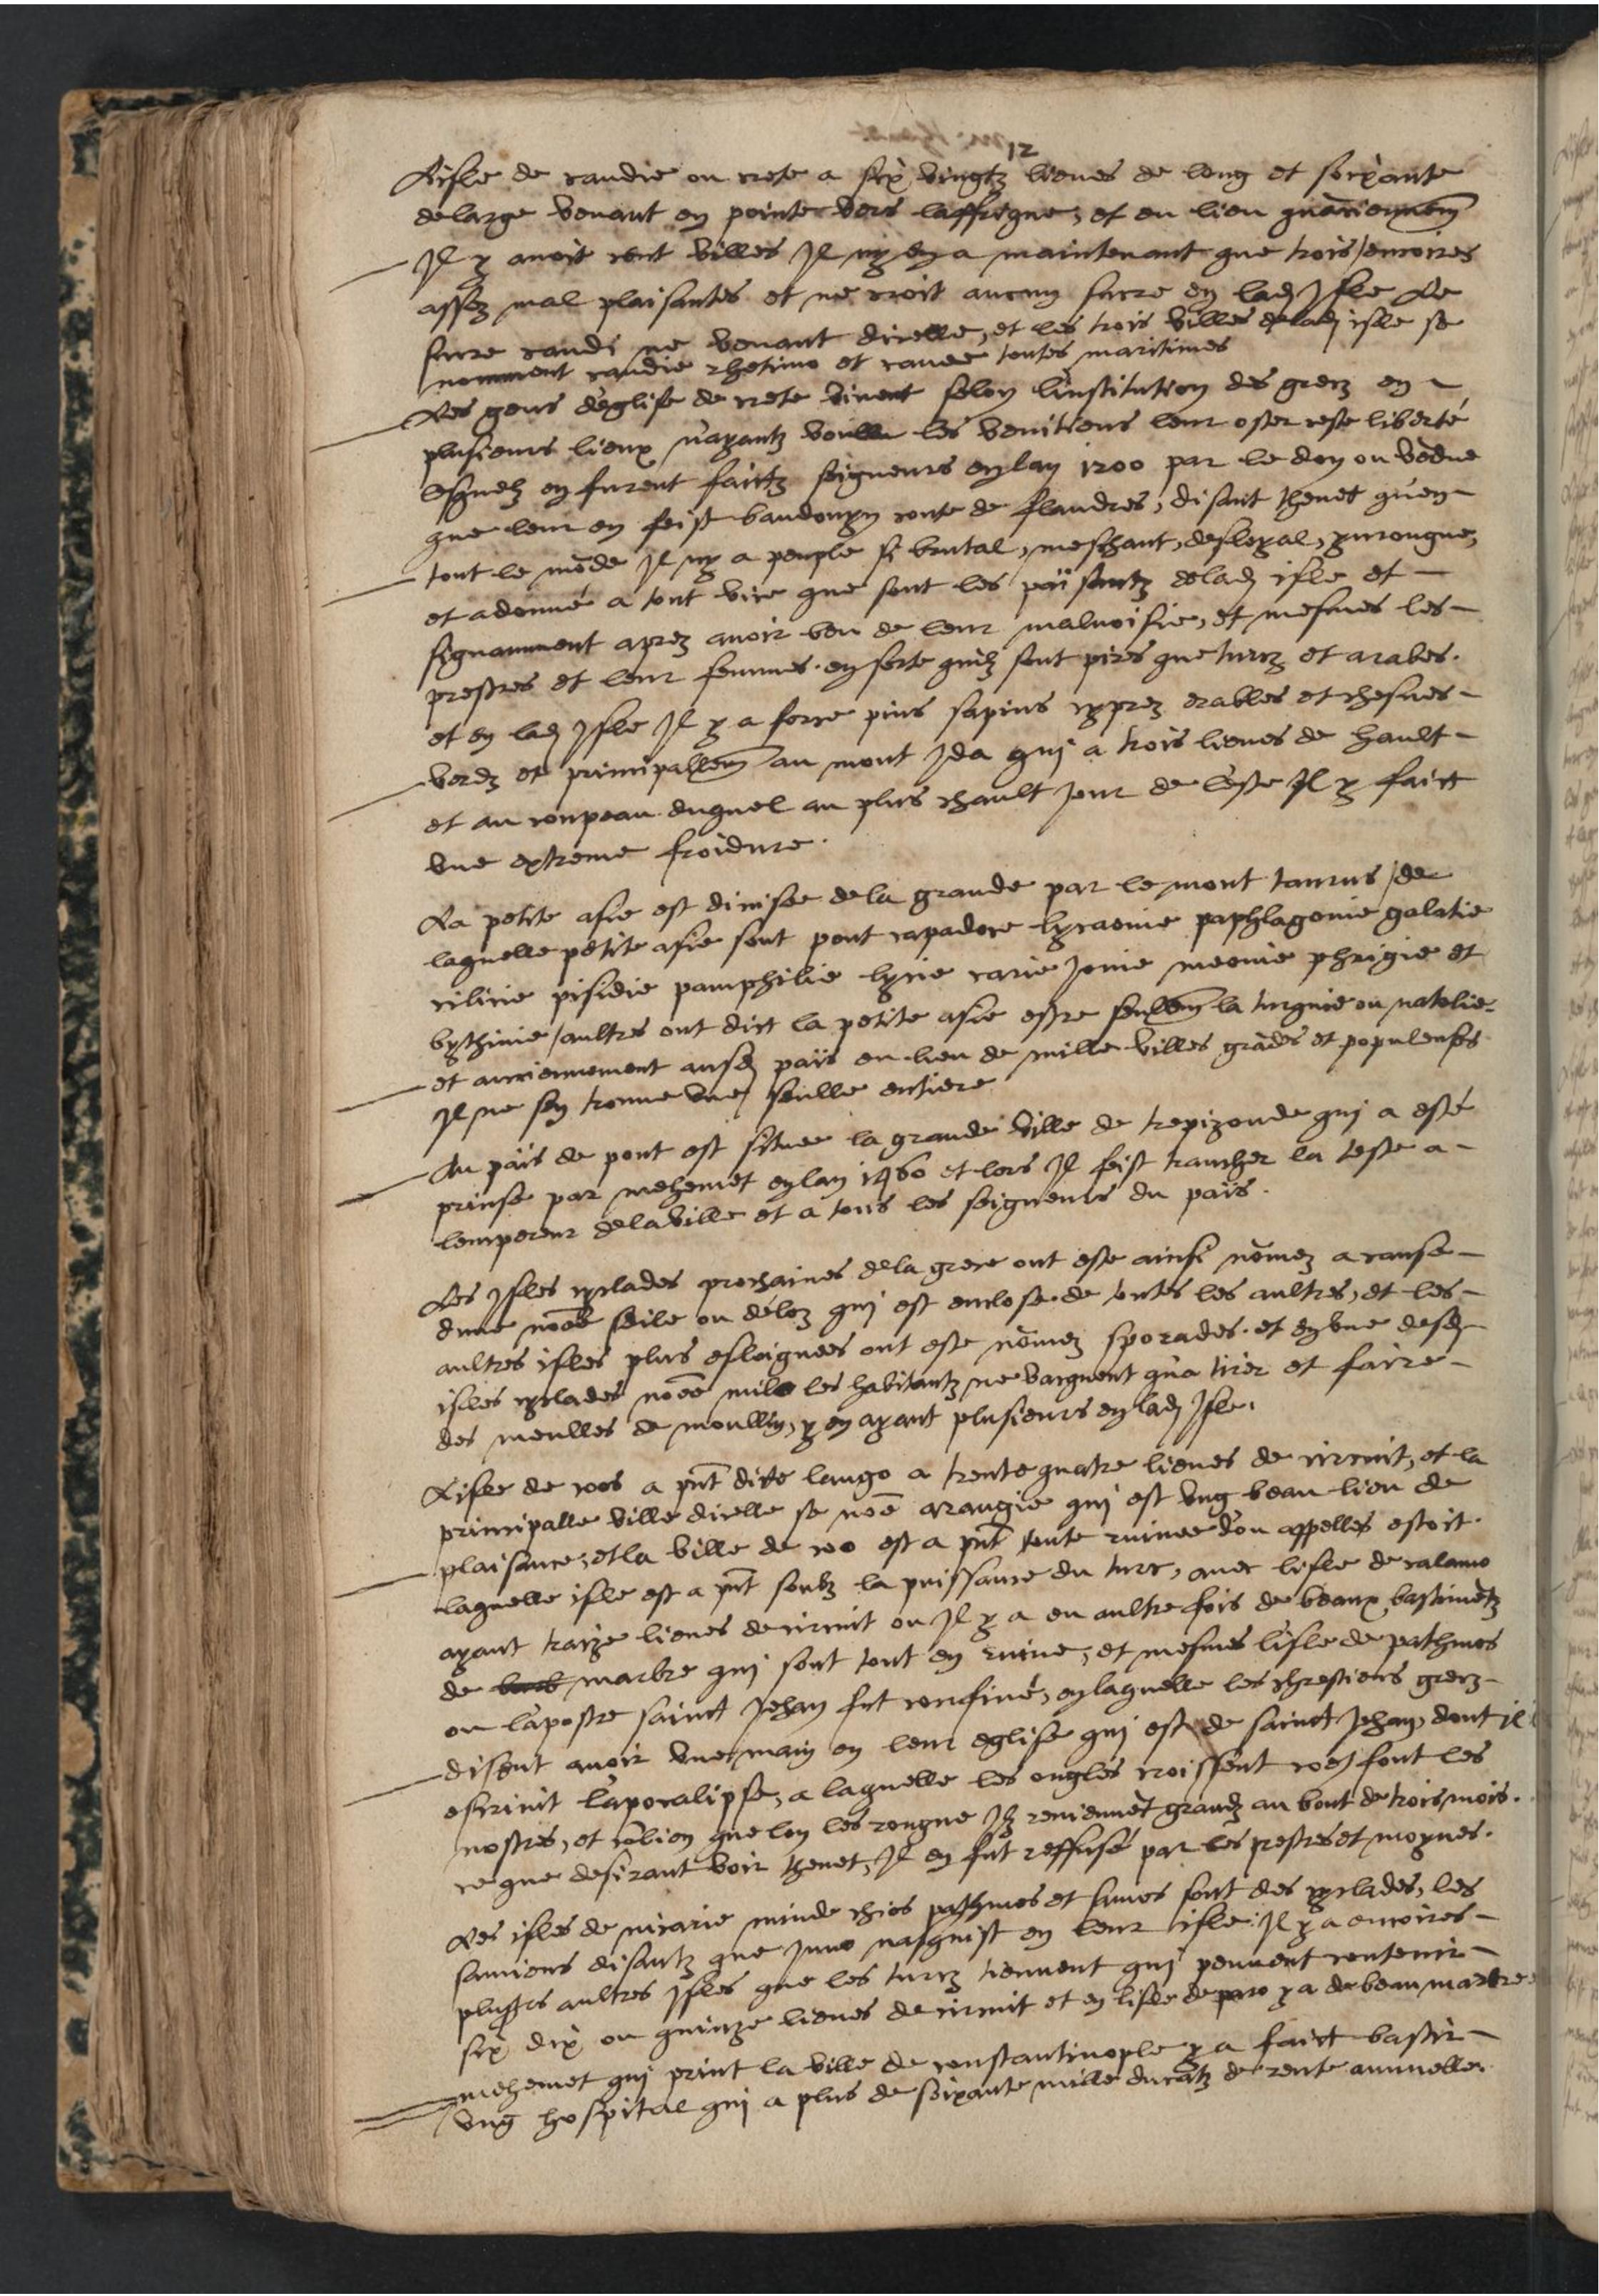 12
Lisle de candie ou crete a six vingtz lieues de long et soixante
de large venant en pointe vers laffrique, et ou lieu quancienem̃
Jl y avoit cent villes Jl ny en a maintenant que trois / encoires
assez mal plaisantes et ne croit aucun sucre en lad isle Le
sucre candi ne venant dicelle, et les trois villes de lad isle se
nomment candie rhetimo et canee toutes maritimes
Les gens d'eglise de crete vivent selon linstitution des grecz en
plusieurs lieux n'ayantz voullu les venitiens leur oster ceste liberté
lesquelz en furent faictz seigneurs en lan 1200 par le don ou vẽdue
que leur en feist baudouyn conte de flandres, disant thevet quen
tout le mõde Jl ny a peuple si brutal, meschant, desloyal, yvrongne,
et adonné a tout vice que sont les païsantz de lad isle et
signamment aprez avoir beu de leur malvoisie, et mesmes les
prestres et leur femmes. en sorte quilz sont pires que turcz et arabes.
et en lad Jsle Jl y a force pins sapins cyprez erables et chesnes
verdz et principallem̃ au mont Jda qui a trois lieues de hault
et au coupeau duquel au plus chault jour de leste Jl y faict
une extreme froidure.
La petite asie est divisee de la grande par le mont taurus / de
laquelle petite asie sont pont capadoce lycaonie paphlagonie galatie
cilicie pisidie pamphilie lycie carie Jonie meonie phrigie et
bythinie / aultres ont dict la petite asie estre seullem̃ la turquie ou natolie
et anciennement ausd païs ou lieu de mille villes grãdes et populeuses
Jl ne sen trouve une seulle entiere
Au païs de pont est situee la grande ville de trepizonde qui a esté
prinse par mehemet en lan 1460 et lors Jl feist trancher la teste a
lempereur de la ville et a tous les seigneurs du païs.
Les Jsles cyclades prochaines de la grece ont este ainsi nõmez a cause
dune nõee sdile ou déloz qui est enclose de toutes les aultres, et les
aultres isles plus esloignees ont este nõmez sporades. et en une desd
isles cyclades nõee milo les habitantz ne vacquent qu'a tirer et faire
des meulles de moullin, y en ayant plusieurs en lad Jsle.
Lisle de coos a pñt dite lango a trente quatre lieues de circuit, et la
principalle ville dicelle se nõe arangie qui est ung beau lieu de
plaisance, et la ville de coo est a pñt toute ruinee d'ou appelles estoit.
laquelle isle est a pñt soubz la puissance du turc, avec lisle de calamo
ayant traize lieues de circuit ou Jl y a eu aultre fois de beaux bastimẽtz
de marbre qui sont tout en ruine, et mesmes lisle de pathmos
ou l'apostre sainct Jehan fut confiné, en laquelle les chrestiens grecz
disent avoir une main en leur eglise qui est de sainct Jehan, dont il
escrivit l'apocalipse, a laquelle les ongles croissent coe font les
nostres, et cõbien que lon les rongne Jlz reviennẽt grandz au bout de trois mois.
ce que desirant voir thevet, Jl en fut reffusé par les prestres et moynes.
Les isles de nicarie minde chios pathmos et samos sont des cyclades, les
samiens disantz que Juno nasquist en leur isle. Jl y a encoires
plusrs aultres Jsles que les turcz tiennent qui peuvent contenir
six dix ou quinze lieues de circuit et en lisle de paro y a de beau marbre
mehemet qui print la ville de constantinople y a faict bastir
ung hospital qui a plus de soixante mille ducatz de rente annuelle.